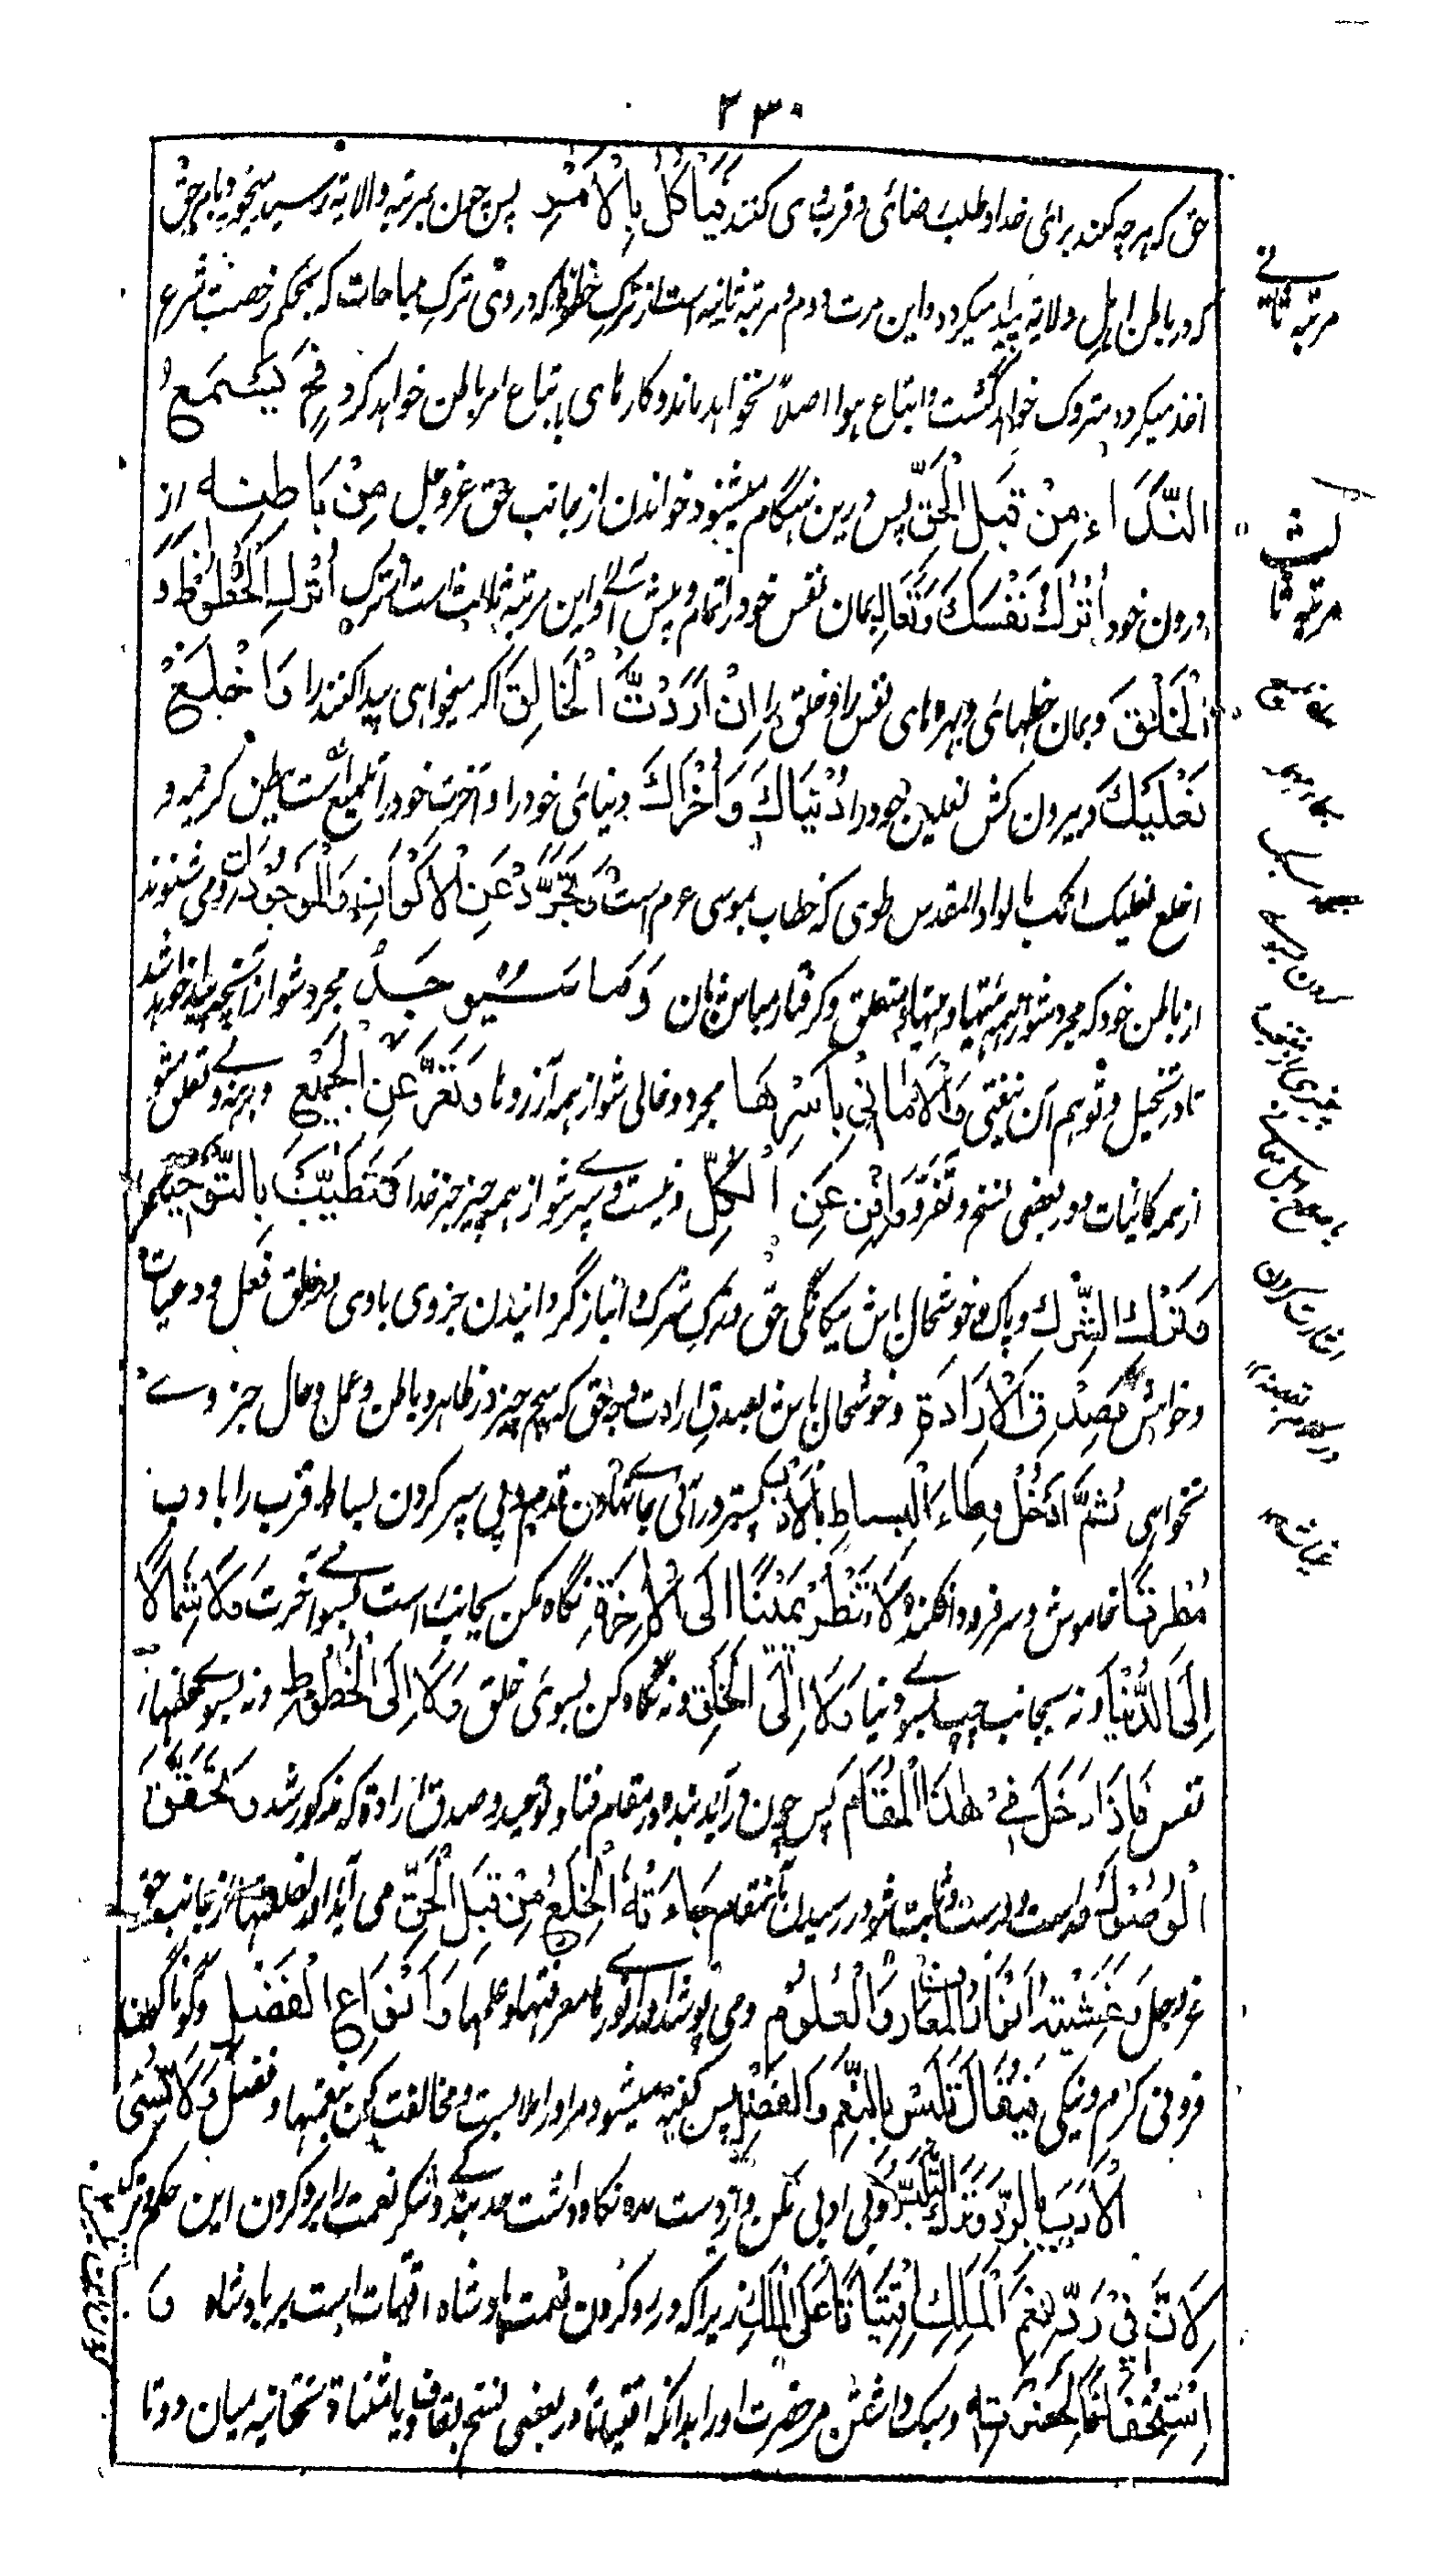 ۲۳۰
حق که هرچه کند برای خدا و طلب رضائی و قرب وی کند فَيَأْكُلُ بِالْأَمْرِ پس چون بمرتبه ولایة رسید میخورد بامر حق
که در باطن اهل ولایة پیدا میگردد و این مرتبه دوم و مرتبه ثانیه است از ترک حظوظ که در وی ترک مباحات که بحکم رخصت شرع
اخذ میکرد متروک خواهد گشت و اتباع هوا اصلا نخواهد ماند و کارهای باتباع امر باطن خواهد کرد فَحِ يَسْمَعُ
النِّدَاءَ مِنْ قِبَلِ الْحَقِّ پس درین هنگام میشنود خواندن از جانب حق عز و جل مِنْ بَاطِنِه از
درون خود اُتْرُكْ نَفْسَكَ وَتَعَالِ بمان نفس خود را تمام و پیش آی و این مرتبه ثالث است از ترک اُتْرُكِ الْحُظُوظَ وَ
الْخَلْقَ و بمان حظهای و بهره های نفس را و خلق را اِنْ اَرَدْتَّ الْخَالِقَ اگر میخواهی پیدا کننده را وَاخْلَعْ
نَعْلَيْكَ و بیرون کش نعلین خود را دُنْيَاكَ وَاُخْرَاكَ دنیای خود را و آخرت خود را تلمیع است بطن کریمه
اخلع نعلیک انک بالواد المقدس طوی که خطاب بموسی ع م است وَتَجَرَّدْ عَنِ الْاَكْوَانِ وَالْمَوْجُودَاتِ و می شنوند
از باطن خود که مجرد شو از همه هستیها و متعلق و گرفتار مباش بآن وَمَا سَيُوْجَدُ مجرد شو از آنچه پیدا خواهد شد
تا در تخیل و توهم آن نیفتی وَالْاَمَانِيِّ بِاَسْرِهَا مجرد و خالی شو از همه آرزوها وَتَعَرَّ عَنِ الْجَمِيْعِ و برهنه و بی تعلق شو
از همه کائنات و در بعضی نسخ و تفرد وَافْنَ عَنِ الْكُلِّ و نیست و بی سپر شو از همه چیز جز خدا فَتَطَيَّبْ بِالتَّوْحِيْدِ
وَتَرْكِ الشِّرْكِ و پاک و خوشحال باش بیگانگی حق و ترک شرک و انباز گردانیدن جز وی با وی در خلق فعل و در عبادت
و خواهش وَصِدْقِ الْاِرَادَةِ و خوشحال باش بصدق ارادت وجه حق که هیچ چیز در ظاهر و باطن و عمل و حال جز وے
نخواهی ثُمَّ ادْخُلْ وِطَاءَ الْبِسَاطِ بِالْاَدَبِ پستر در آئی جای نهادن قدم و پی سپر کردن بساط قرب را با ادب
مُطْرِقًا خاموش و سر فرود افکنده لَا تَنْظُرْ يَمِيْنًا اِلَى الْاٰخِرَةِ نگاه مکن بجانب راست بسوے آخرت وَلَا شِمَالًا
اِلَى الدُّنْيَا و نه بجانب چپ بسوے دنیا وَلَا اِلَى الْخَلْقِ و نه نگاه کن بسوی خلق وَلَا اِلَى الْحُظُوْظِ و نه بسوی حظهای
نفس فَاِذَا دَخَلَ فِيْ هٰذَا الْمَقَامِ پس چون درآید بنده در مقام فنا و توحید و صدق ارادة که مذکور شد وَتَحَقَّقَ
الْوُصُوْلُ و راست و درست و ثابت شود رسیدن بآن مقام جَاءَتْهُ الْخِلَعُ مِنْ قِبَلِ الْحَقِّ می آید او را خلعتها از جانب حق
عز و جل وَغَشِيَتْهُ اَنْوَارُ الْمَعَارِفِ وَالْعُلُوْمِ و می پوشد او را نورهای معرفتها و علمها وَاَنْوَاعُ الْفَضْلِ و گوناگون
فزونی کرم و نیکی فَيُقَالُ تَلَبَّسْ بِالنِّعَمِ وَالْفَضْلِ پس گفته میشود مر او را ملابست و مخالطت کن بنعمتها و فضل وَلَا تُسِئِ
الْاَدَبَ بِالرَّدِّ وَتَرْكِ التَّلَبُّسِ و بی ادبی مکن
لِاَنَّ فِيْ رَدِّ نِعَمِ الْمَلِكِ اِفْتِيَاتًا عَلَى الْمَلِكِ زیرا که در رد کردن نعمت بادشاه افتیات است بر بادشاه وَ
اِسْتِخْفَافًا لِحَضْرَتِهِ و سبک داشتن مر حضرت او را بدانکه افتیاتا در بعضی نسخ بقاف و یا مثناة تحتانیه میان دو تا
مرتبه ثانی
مرتبه ثالث